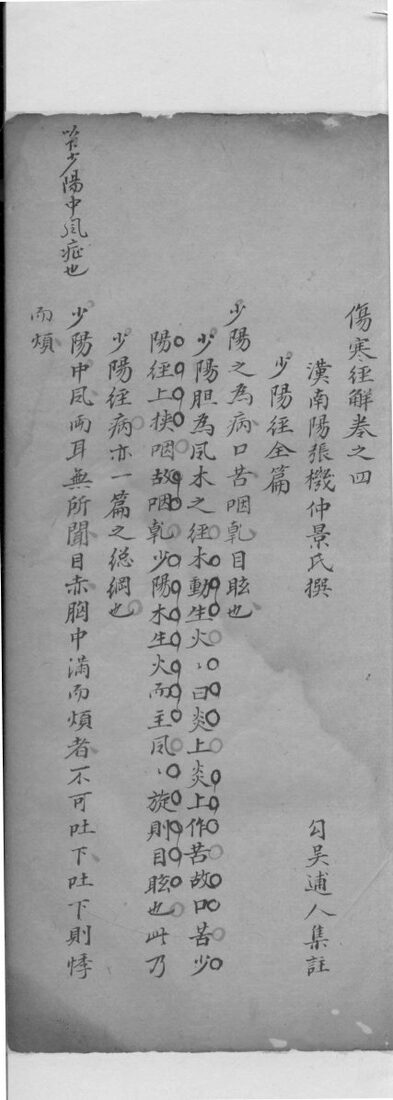 傷寒经解卷之四
漢南陽張機仲景氏撰
勾吴逋人集註
少陽经全篇
少陽之為病口苦咽乹目眩也
少陽胆為风木之经木動生火〻曰炎上炎上作苦故口苦少
陽经上挟咽故咽乹少陽木生火而主风〻旋則目眩也此乃
少陽经病亦一篇之総綱也
少陽中风两耳無所聞目赤胸中满而煩者不可吐下吐下則悸
而煩
少陽中风症也